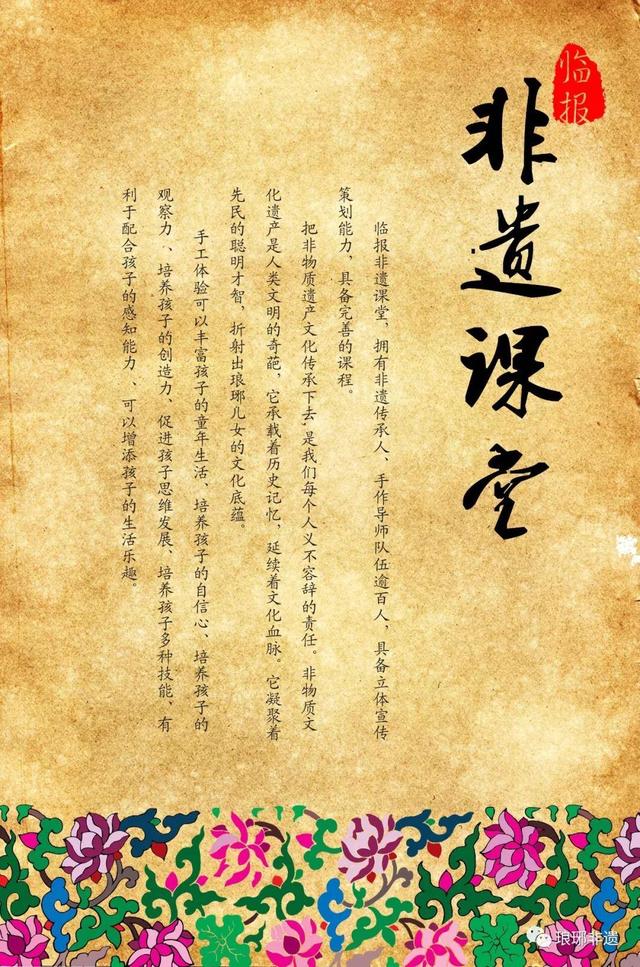 临报
非遗课堂
临报非遗课堂，拥有非遗传承人、手作导师队伍逾百人，具备立体宣传
策划能力，具备完善的课程。
把非物质遗产文化传承下去,是我们每个人义不容辞的责任。非物质文
化遗产是人类文明的奇葩，它承载着历史记忆，延续着文化血脉。它凝聚着
先民的聪明才智，折射出琅琊儿女的文化底蕴。
手工体验可以丰富孩子的童年生活、培养孩子的自信心、培养孩子的
观察力、培养孩子的创造力、促进孩子思维发展、培养孩子多种技能、有
利于配合孩子的感知能力、可以增添孩子的生活乐趣。
琅琊非遗